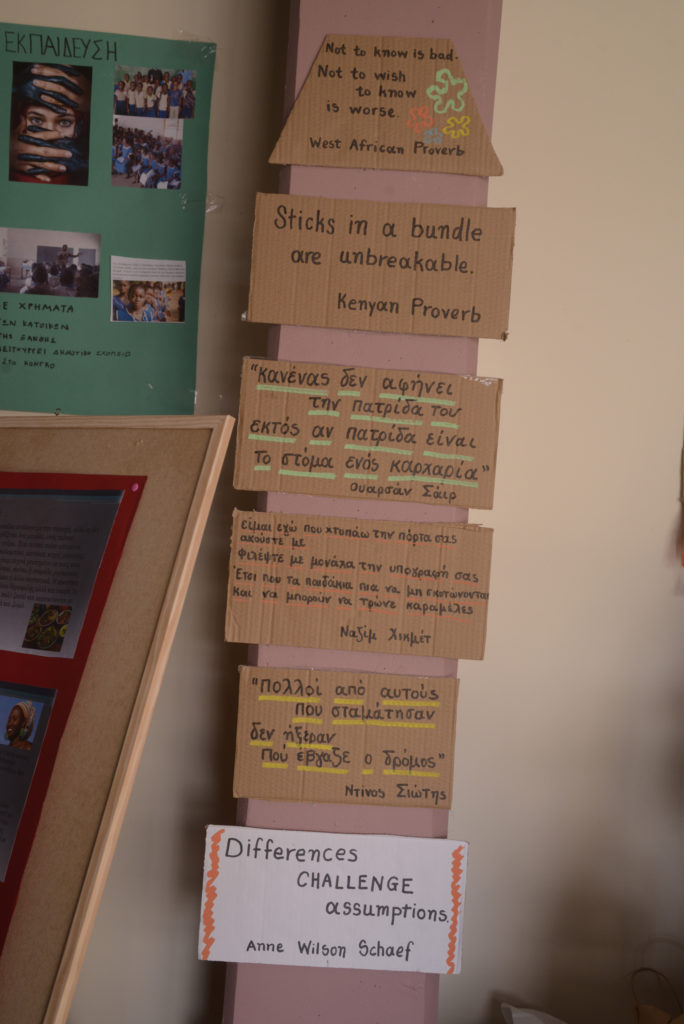 ΕΚΠΑΙΔΕΥΣΗ
Ε ΧΡΗΜΑΤΑ
ΩΝ ΚΑΤΟΙΚΩΝ
ΤΗΣ ΞΑΝΘΗΣ
ΛΕΙΤΟΥΡΓΕΙ ΔΗΜΟΤΙΚΟ ΣΧΟΛΕΙΟ
ΣΤΟ ΚΟΝΓΚΟ
Not to know is bad.
Not to wish
to know
is worse.
West African Proverb
Sticks in a bundle
are unbreakable.
Kenyan Proverb
"κανένας δεν αφήνει
την πατρίδα του
εκτός αν πατρίδα είναι
το στόμα ενός καρχαρία"
Ουαρσάν Σάιρ
είμαι εγώ που χτυπάω την πόρτα σας
ακούστε με
φιλέψτε με μονάχα την υπογραφή σας
Έτσι που τα παιδάκια πια να μη σκοτώνονται
και να μπορούν να τρώνε καραμέλες
Ναζίμ Χικμέτ
"Πολλοί από αυτούς
που σταμάτησαν
δεν ήξεραν
πού έβγαζε ο δρόμος"
Ντίνος Σιώτης
Differences
CHALLENGE
assumptions.
Anne Wilson Schaef